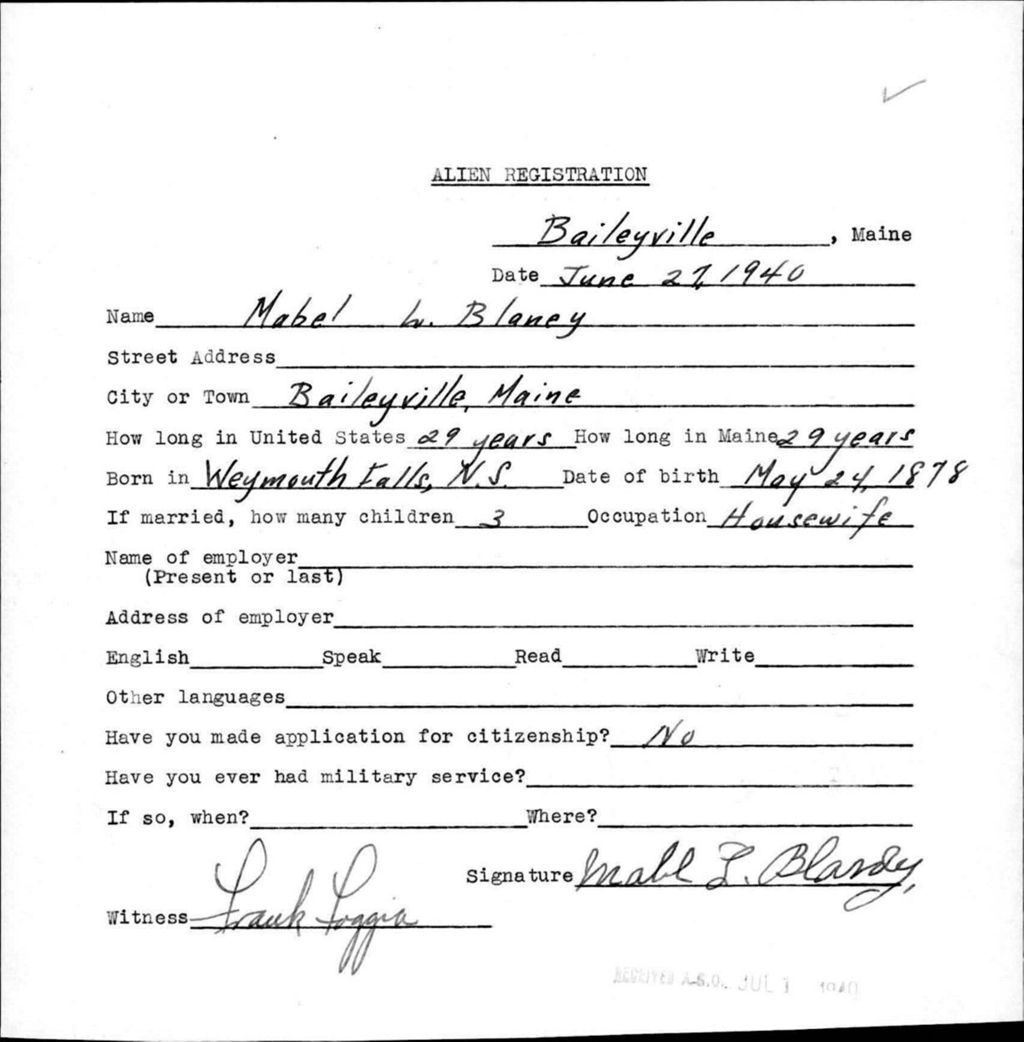 ALIEN REGISTRATION
Baileyville, Maine
Date June 27, 1940
Name Mabel L. Blaney
Street Address
City or Town Baileyville, Maine
How long in United States 29 years How long in Maine 29 years
Born in Weymouth Falls, N.S. Date of birth May 24, 1878
If married, how many children 3 Occupation Housewife
Name of employer
(Present or last)
Address of employer
English Speak Read Write
Other languages
Have you made application for citizenship? No
Have you ever had military service?
If so, when? Where?
Signature L.
Witness Frank Foggia
RECEIVED A.G.O. JUL 1 1940